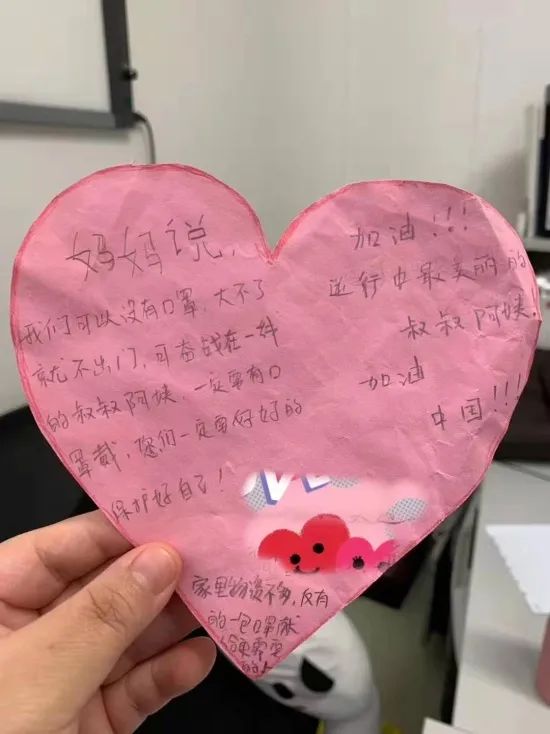 妈妈说，
我们可以没有口罩，大不了
就不出门，可奋战在一线
的叔叔阿姨，一定要有口
罩戴，您们一定要好好的
保护好自己！
加油！！！
逆行中最美丽的
叔叔阿姨
加油
中国！！！
家里物资不多，仅有
的一包口罩献
给更需要
的人